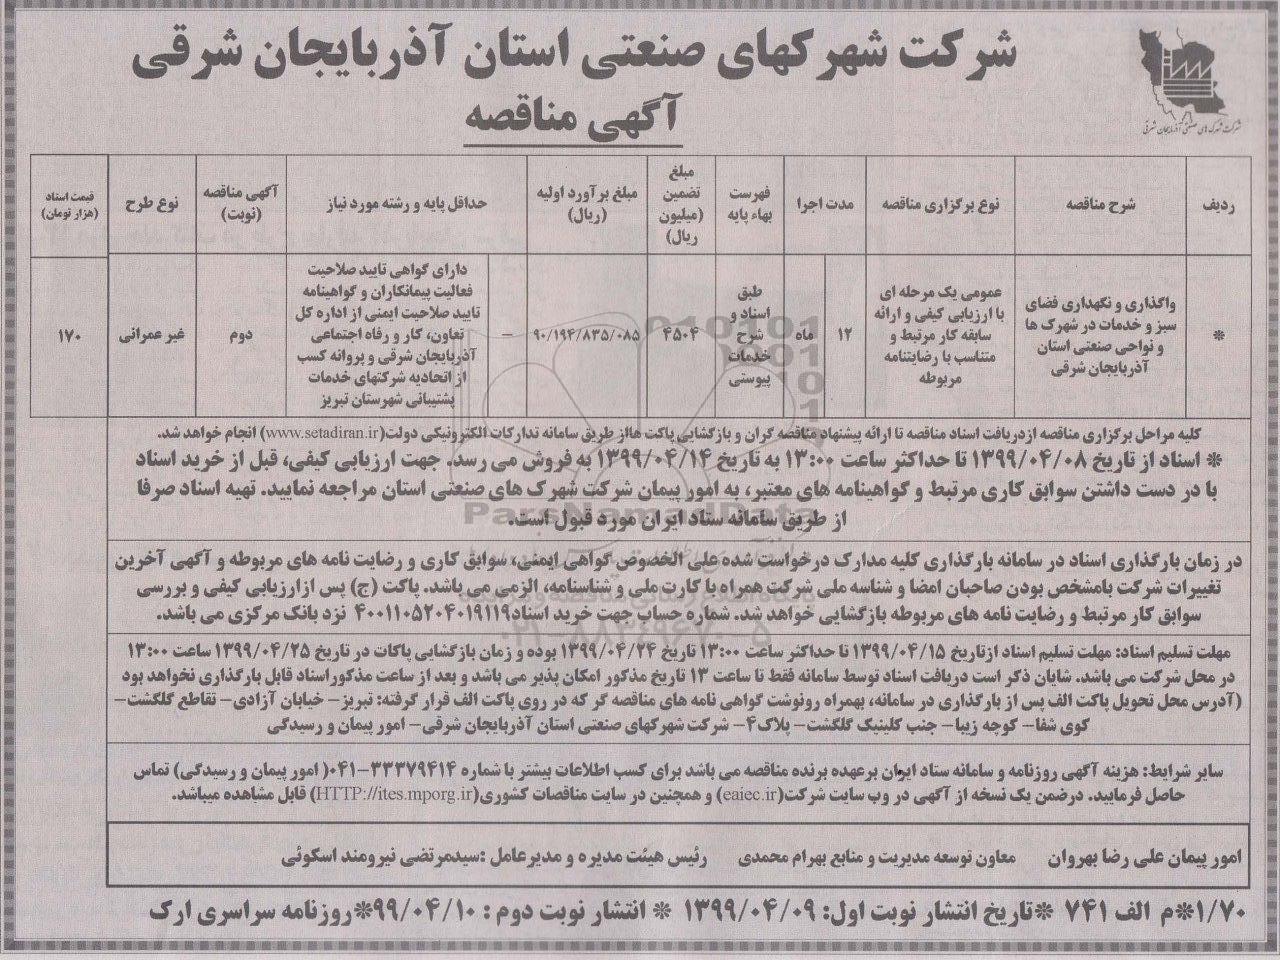 شرکت شهرکهای صنعتی استان آذربایجان شرقی
شرکت شهرک های صنعتی آذربایجان شرقی
آگهی مناقصه
ردیف
شرح مناقصه
نوع برگزاری مناقصه
مدت اجرا
فهرست
بهاء پایه
مبلغ
تضمین
(میلیون
ریال)
مبلغ برآورد اولیه
(ریال)
حداقل پایه و رشته مورد نیاز
آگهی مناقصه
(نوبت)
نوع طرح
قیمت اسناد
(هزار تومان)
*
واگذاری و نگهداری فضای
سبز و خدمات در شهرک ها
و نواحی صنعتی استان
آذربایجان شرقی
عمومی یک مرحله ای
با ارزیابی کیفی و ارائه
سابقه کار مرتبط و
متناسب با رضایتنامه
مربوطه
۱۲
ماه
طبق
اسناد و
شرح
خدمات
پیوستی
۴۵۰۴
۹۰/۱۹۴/۸۳۵/۰۸۵
–
دارای گواهی تایید صلاحیت
فعالیت پیمانکاران و گواهینامه
تایید صلاحیت ایمنی از اداره کل
تعاون، کار و رفاه اجتماعی
آذربایجان شرقی و پروانه کسب
از اتحادیه شرکتهای خدمات
پشتیبانی شهرستان تبریز
دوم
غیر عمرانی
۱۷۰
کلیه مراحل برگزاری مناقصه ازدریافت اسناد مناقصه تا ارائه پیشنهاد مناقصه گران و بازگشایی پاکت هااز طریق سامانه تدارکات الکترونیکی دولت(www.setadiran.ir) انجام خواهد شد.
* اسناد از تاریخ ۱۳۹۹/۰۴/۰۸ تا حداکثر ساعت ۱۳:۰۰ به تاریخ ۱۳۹۹/۰۴/۱۴ به فروش می رسد. جهت ارزیابی کیفی، قبل از خرید اسناد
با در دست داشتن سوابق کاری مرتبط و گواهینامه های معتبر، به امور پیمان شرکت شهرک های صنعتی استان مراجعه نمایید. تهیه اسناد صرفا
از طریق سامانه ستاد ایران مورد قبول است.
ParsNamadData
در زمان بارگذاری اسناد در سامانه بارگذاری کلیه مدارک درخواست شده علی الخصوص گواهی ایمنی، سوابق کاری و رضایت نامه های مربوطه و آگهی آخرین
تغییرات شرکت بامشخص بودن صاحبان امضا و شناسه ملی شرکت همراه با کارت ملی و شناسنامه، الزمی می باشد. پاکت (ج) پس ازارزیابی کیفی و بررسی
سوابق کار مرتبط و رضایت نامه های مربوطه بازگشایی خواهد شد. شماره حساب جهت خرید اسناد۴۰۰۱۱۰۵۲۰۴۰۱۹۱۱۹ نزد بانک مرکزی می باشد.
۰۲۱-۸۸۳۴۹۶۷۰-۵
مهلت تسلیم اسناد: مهلت تسلیم اسناد ازتاریخ ۱۳۹۹/۰۴/۱۵ تا حداکثر ساعت ۱۳:۰۰ تاریخ ۱۳۹۹/۰۴/۲۴ بوده و زمان بازگشایی پاکات در تاریخ ۱۳۹۹/۰۴/۲۵ ساعت ۱۳:۰۰
در محل شرکت می باشد. شایان ذکر است دریافت اسناد توسط سامانه فقط تا ساعت ۱۳ تاریخ مذکور امکان پذیر می باشد و بعد از ساعت مذکوراسناد قابل بارگذاری نخواهد بود
(آدرس محل تحویل پاکت الف پس از بارگذاری در سامانه، بهمراه رونوشت گواهی نامه های مناقصه گر که در روی پاکت الف قرار گرفته: تبریز– خیابان آزادی– تقاطع گلگشت–
کوی شفا– کوچه زیبا– جنب کلینیک گلگشت– پلاک۴– شرکت شهرکهای صنعتی استان آذربایجان شرقی– امور پیمان و رسیدگی
سایر شرایط: هزینه آگهی روزنامه و سامانه ستاد ایران برعهده برنده مناقصه می باشد برای کسب اطلاعات بیشتر با شماره ۳۳۳۷۹۴۱۴–۰۴۱( امور پیمان و رسیدگی) تماس
حاصل فرمایید. درضمن یک نسخه از آگهی در وب سایت شرکت(eaiec.ir) و همچنین در سایت مناقصات کشوری(HTTP://ites.mporg.ir) قابل مشاهده میباشد.
امور پیمان علی رضا بهروان معاون توسعه مدیریت و منابع بهرام محمدی رئیس هیئت مدیره و مدیرعامل :سیدمرتضی نیرومند اسکوئی
۱/۷۰*م الف ۷۴۱ *تاریخ انتشار نوبت اول: ۱۳۹۹/۰۴/۰۹ * انتشار نوبت دوم : ۹۹/۰۴/۱۰*روزنامه سراسری ارک